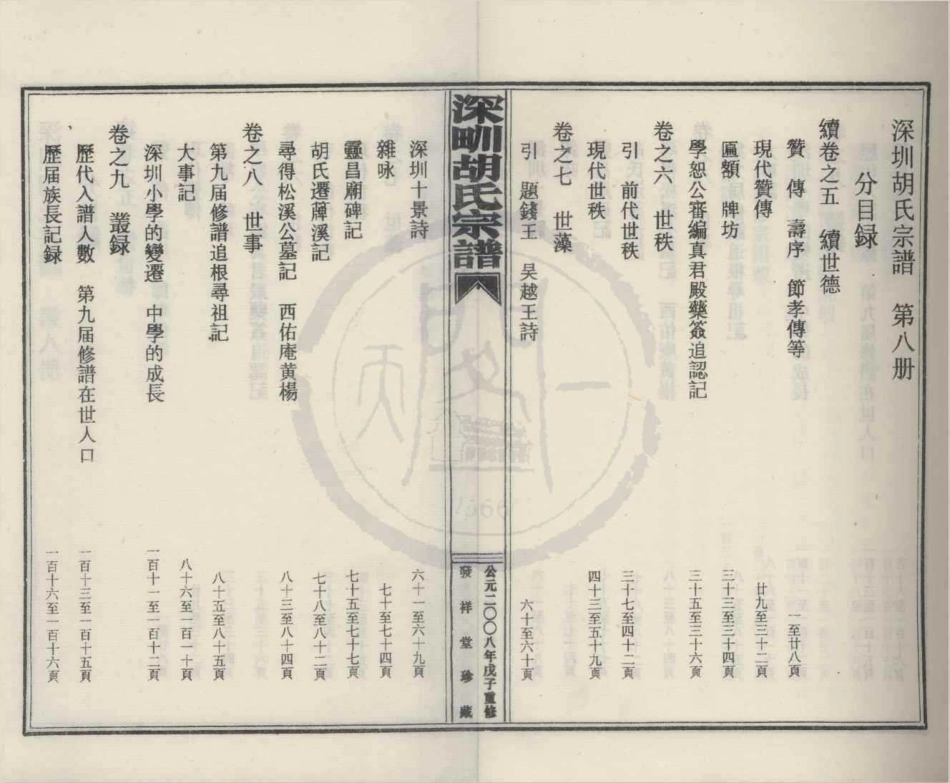 深圳胡氏宗譜　第八册
分目録
續卷之五　續世德
贊　傳　壽序　節孝傳等　一至廿八頁
現代贊傳　廿九至三十二頁
匾額　牌坊　三十三至三十四頁
學恕公審編真君殿藥簽追認記　三十五至三十六頁
卷之六　世秩
引　前代世秩　三十七至四十二頁
現代世秩　四十三至五十九頁
卷之七　世藻
引　題錢王　吴越王詩　六十至六十頁
深甽胡氏宗譜
公元二〇〇八年戊子重修
發祥堂珍藏
深圳十景詩　六十一至六十九頁
雜咏　七十至七十四頁
靈昌廟碑記　七十五至七十七頁
胡氏遷蘀溪記　七十八至八十二頁
尋得松溪公墓記　西佑庵黄楊　八十三至八十四頁
卷之八　世事
第九届修譜追根尋祖記　八十五至八十五頁
大事記　八十六至一百一十頁
深圳小學的變遷　中學的成長　一百十一至一百十二頁
卷之九　叢録
歷代入譜人數　第九届修譜在世人口　一百十三至一百十五頁
歷届族長記録　一百十六至一百十六頁